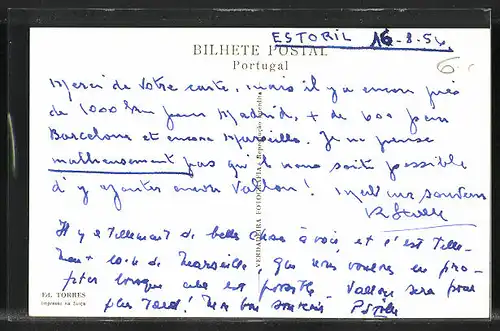 ESTORIL 16-8-54
BILHETE POSTAL
Portugal
Merci de votre carte, mais il y a encore près
de 1000 km pour Madrid, + de 600 pour
Barcelone et encore Marseille. Je ne pense
malheureusement pas qu'il nous soite possible
d'y ajouter encore Vallon ! souvenir
Il y a tellement de belles choses à voir, et c'est telle-
de Marseille, que nous voulons en pro-
fiter lorsque cela est possible. Vallon sera pour
plus tard ! Un bon souvenir
VERDADEIRA FOTOGRAFIA
Ed. TORRES
Impresso na Suíça